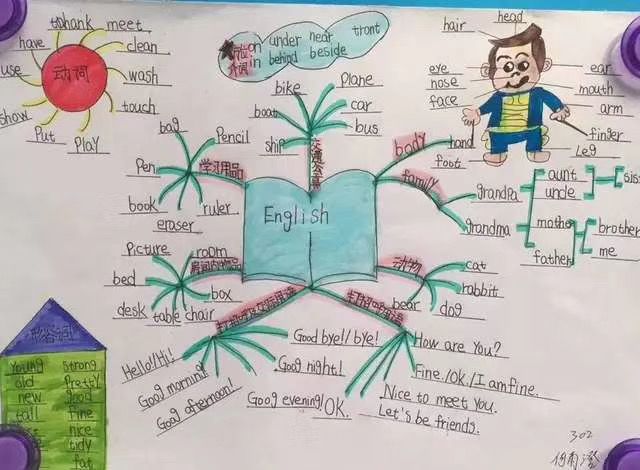 thank meet
have
clean
use
动词
wash
show
touch
Put
Play
on under near front
介词
in behind beside
head
hair
eye
ear
nose
mouth
face
arm
hand
finger
foot
Leg
bike
Plane
boat
car
ship
bus
交通工具
bag
Pencil
Pen
学习用品
book
ruler
eraser
English
body
family
grandpa
aunt
uncle
sis
grandma
mother
father
brother
me
Picture
room
房间内物品
bed
box
desk table chair
动物
cat
rabbit
bear
dog
Hello!/Hi!
Goog morning!
Goog afternoon!
Good bye!/bye!
Goog night!
Goog evening!
OK.
How are You?
Fine./Ok./I am fine.
Nice to meet You.
Let's be friends.
形容词
Young strong
old Pretty
new good
tall fine
nice
tidy
fat
302